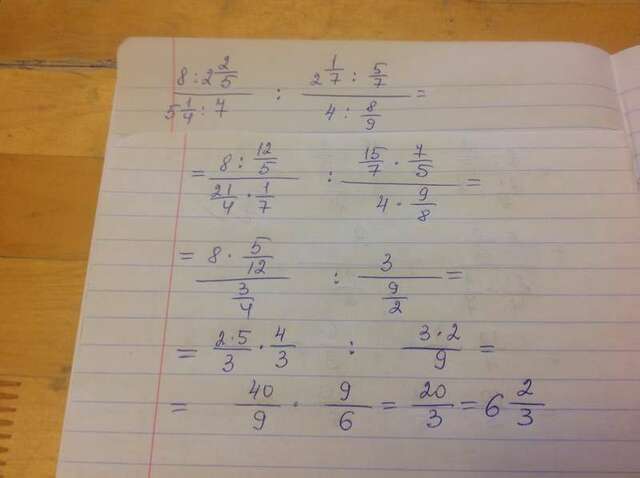 (8 : 2 2/5)/(5 1/4 : 7) : (2 1/7 : 5/7)/(4 : 8/9) =
= (8 : 12/5)/(21/4 · 1/7) : (15/7 · 7/5)/(4 · 9/8) =
= (8 · 5/12)/(3/4) : 3/(9/2) =
= (2·5)/3 · 4/3 : (3·2)/9 =
= 40/9 · 9/6 = 20/3 = 6 2/3